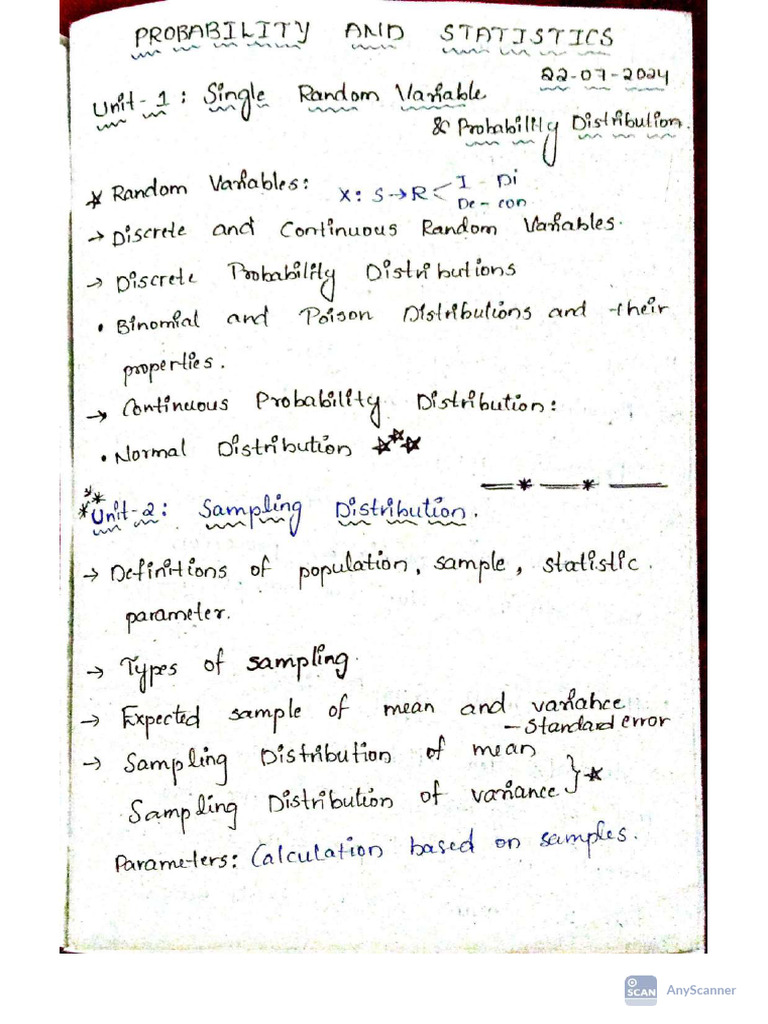 PROBABILITY AND STATISTICS
22-07-2024
Unit-1: Single Random Variable
& Probability Distribution.
* Random Variables: X: S→R< I - Di
De - con
→ Discrete and Continuous Random Variables.
→ Discrete Probability Distributions
• Binomial and Poison Distributions and their
properties.
→ Continuous Probability Distribution:
• Normal Distribution ☆☆☆
=*=*—
Unit-2: Sampling Distribution.
→ Definitions of population, sample, statistic.
parameter.
→ Types of sampling.
→ Expected sample of mean and variance
- Standard error
→ Sampling Distribution of mean
Sampling Distribution of variance } ☆
Parameters: Calculation based on samples.
SCAN AnyScanner